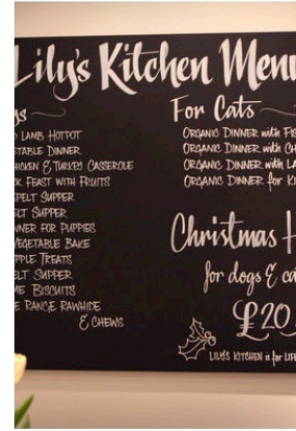 Lily's Kitchen Menu
For Cats
LAMB HOTPOT
TABLE DINNER
CHICKEN & TURKEY CASSEROLE
FEAST WITH FRUITS
SPELT SUPPER
SUPPER
DINNER FOR PUPPIES
VEGETABLE BAKE
APPLE TREATS
SUPPER
BISCUITS
RANGE RAWHIDE
& CHEWS
ORGANIC DINNER with
ORGANIC DINNER with
ORGANIC DINNER with
ORGANIC DINNER for
Christmas H
for dogs & ca
£20
LILY'S KITCHEN is for LIFE